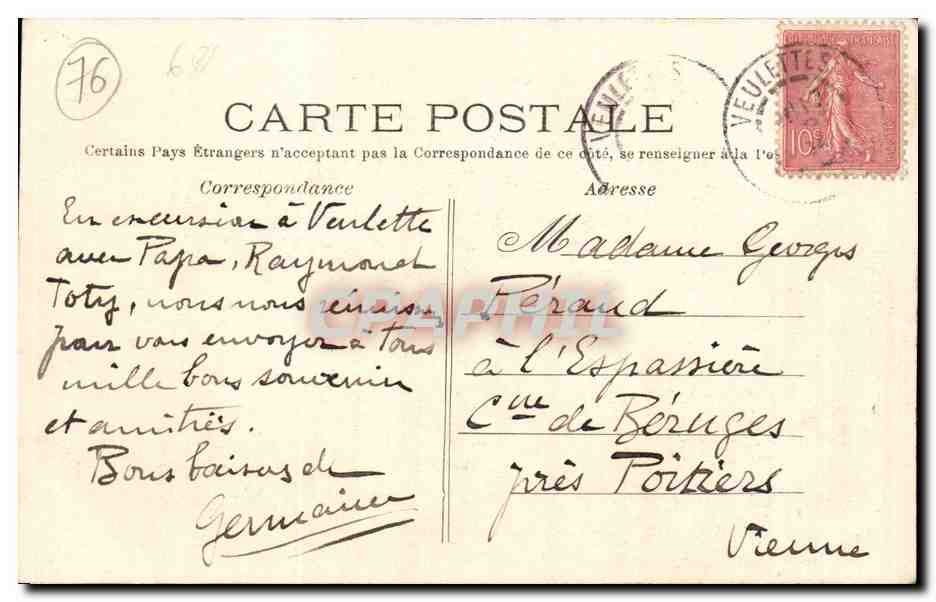 76
CARTE POSTALE
Certains Pays Étrangers n'acceptant pas la Correspondance de ce côté, se renseigner à la
Correspondance
Adresse
VEULETTES
VEULETTES
10c
En excursion à Veulette
avec Papa, Raymond et
Toty, nous nous réunissons
pour vous envoyer à Tous
mille bons souvenirs
et amitiés.
Bons baisers de
Germaine
Madame Georges
Péraud
à l'Espassière
Cne de Béruges
près Poitiers
Vienne
CPAPHIL